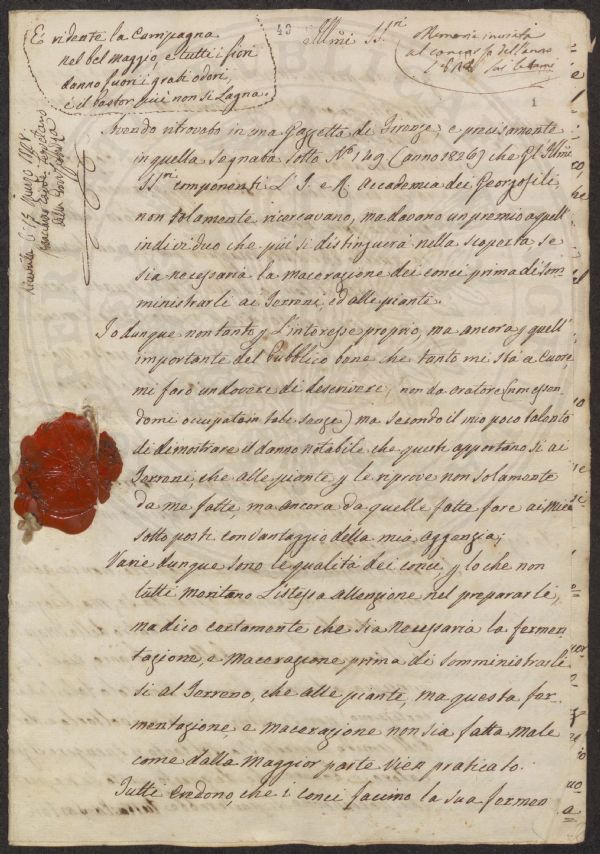 E ridente la Campagna
nel bel maggio, e tutti i fiori
danno fuori i grati odori,
e il Pastor più non si Lagna.
43
Illmi SS.ri
Memoria inviata
al concorso dell'anno
1
Avendo ritrovato in una Gazzetta di Firenze, e precisamente
in quella segnata sotto N.º 149 (anno 1826) che Gl'Illmi
SS.ri componenti L'I. e R. Accademia dei Georgofili,
non solamente ricercavano, ma davono un premio a quell'
individuo che più si distinguerà nella scoperta, se
sia necessaria la macerazione dei conci prima di som-
ministrarli ai Terreni, ed alle piante.
Io dunque non tanto p L'interesse proprio, ma ancora p quell'
importante del Pubblico bene che tanto mi stà a cuore,
mi farò un dovere di descrivere, non da oratore (non essen-
domi occupato in tale) ma secondo il mio poco talento
di dimostrare il danno notabile, che questi apportano sì ai
Terreni, che alle piante p le riprove non solamente
da me fatte, ma ancora da quelle fatte fare ai miei
sotto posti con vantaggio della mia aggenzia;
Varie dunque sono le qualità dei conci, p lo che non
tutti meritano L'istessa attenzione nel prepararli,
ma dico certamente che sia necessaria la fermen-
tazione, e macerazione prima di somministrarli
sì al Terreno, che alle piante, ma questa fer-
mentazione e macerazione non sia fatta male
come dalla maggior parte vien praticato.
Tutti credono, che i conci faccino la sua fermen